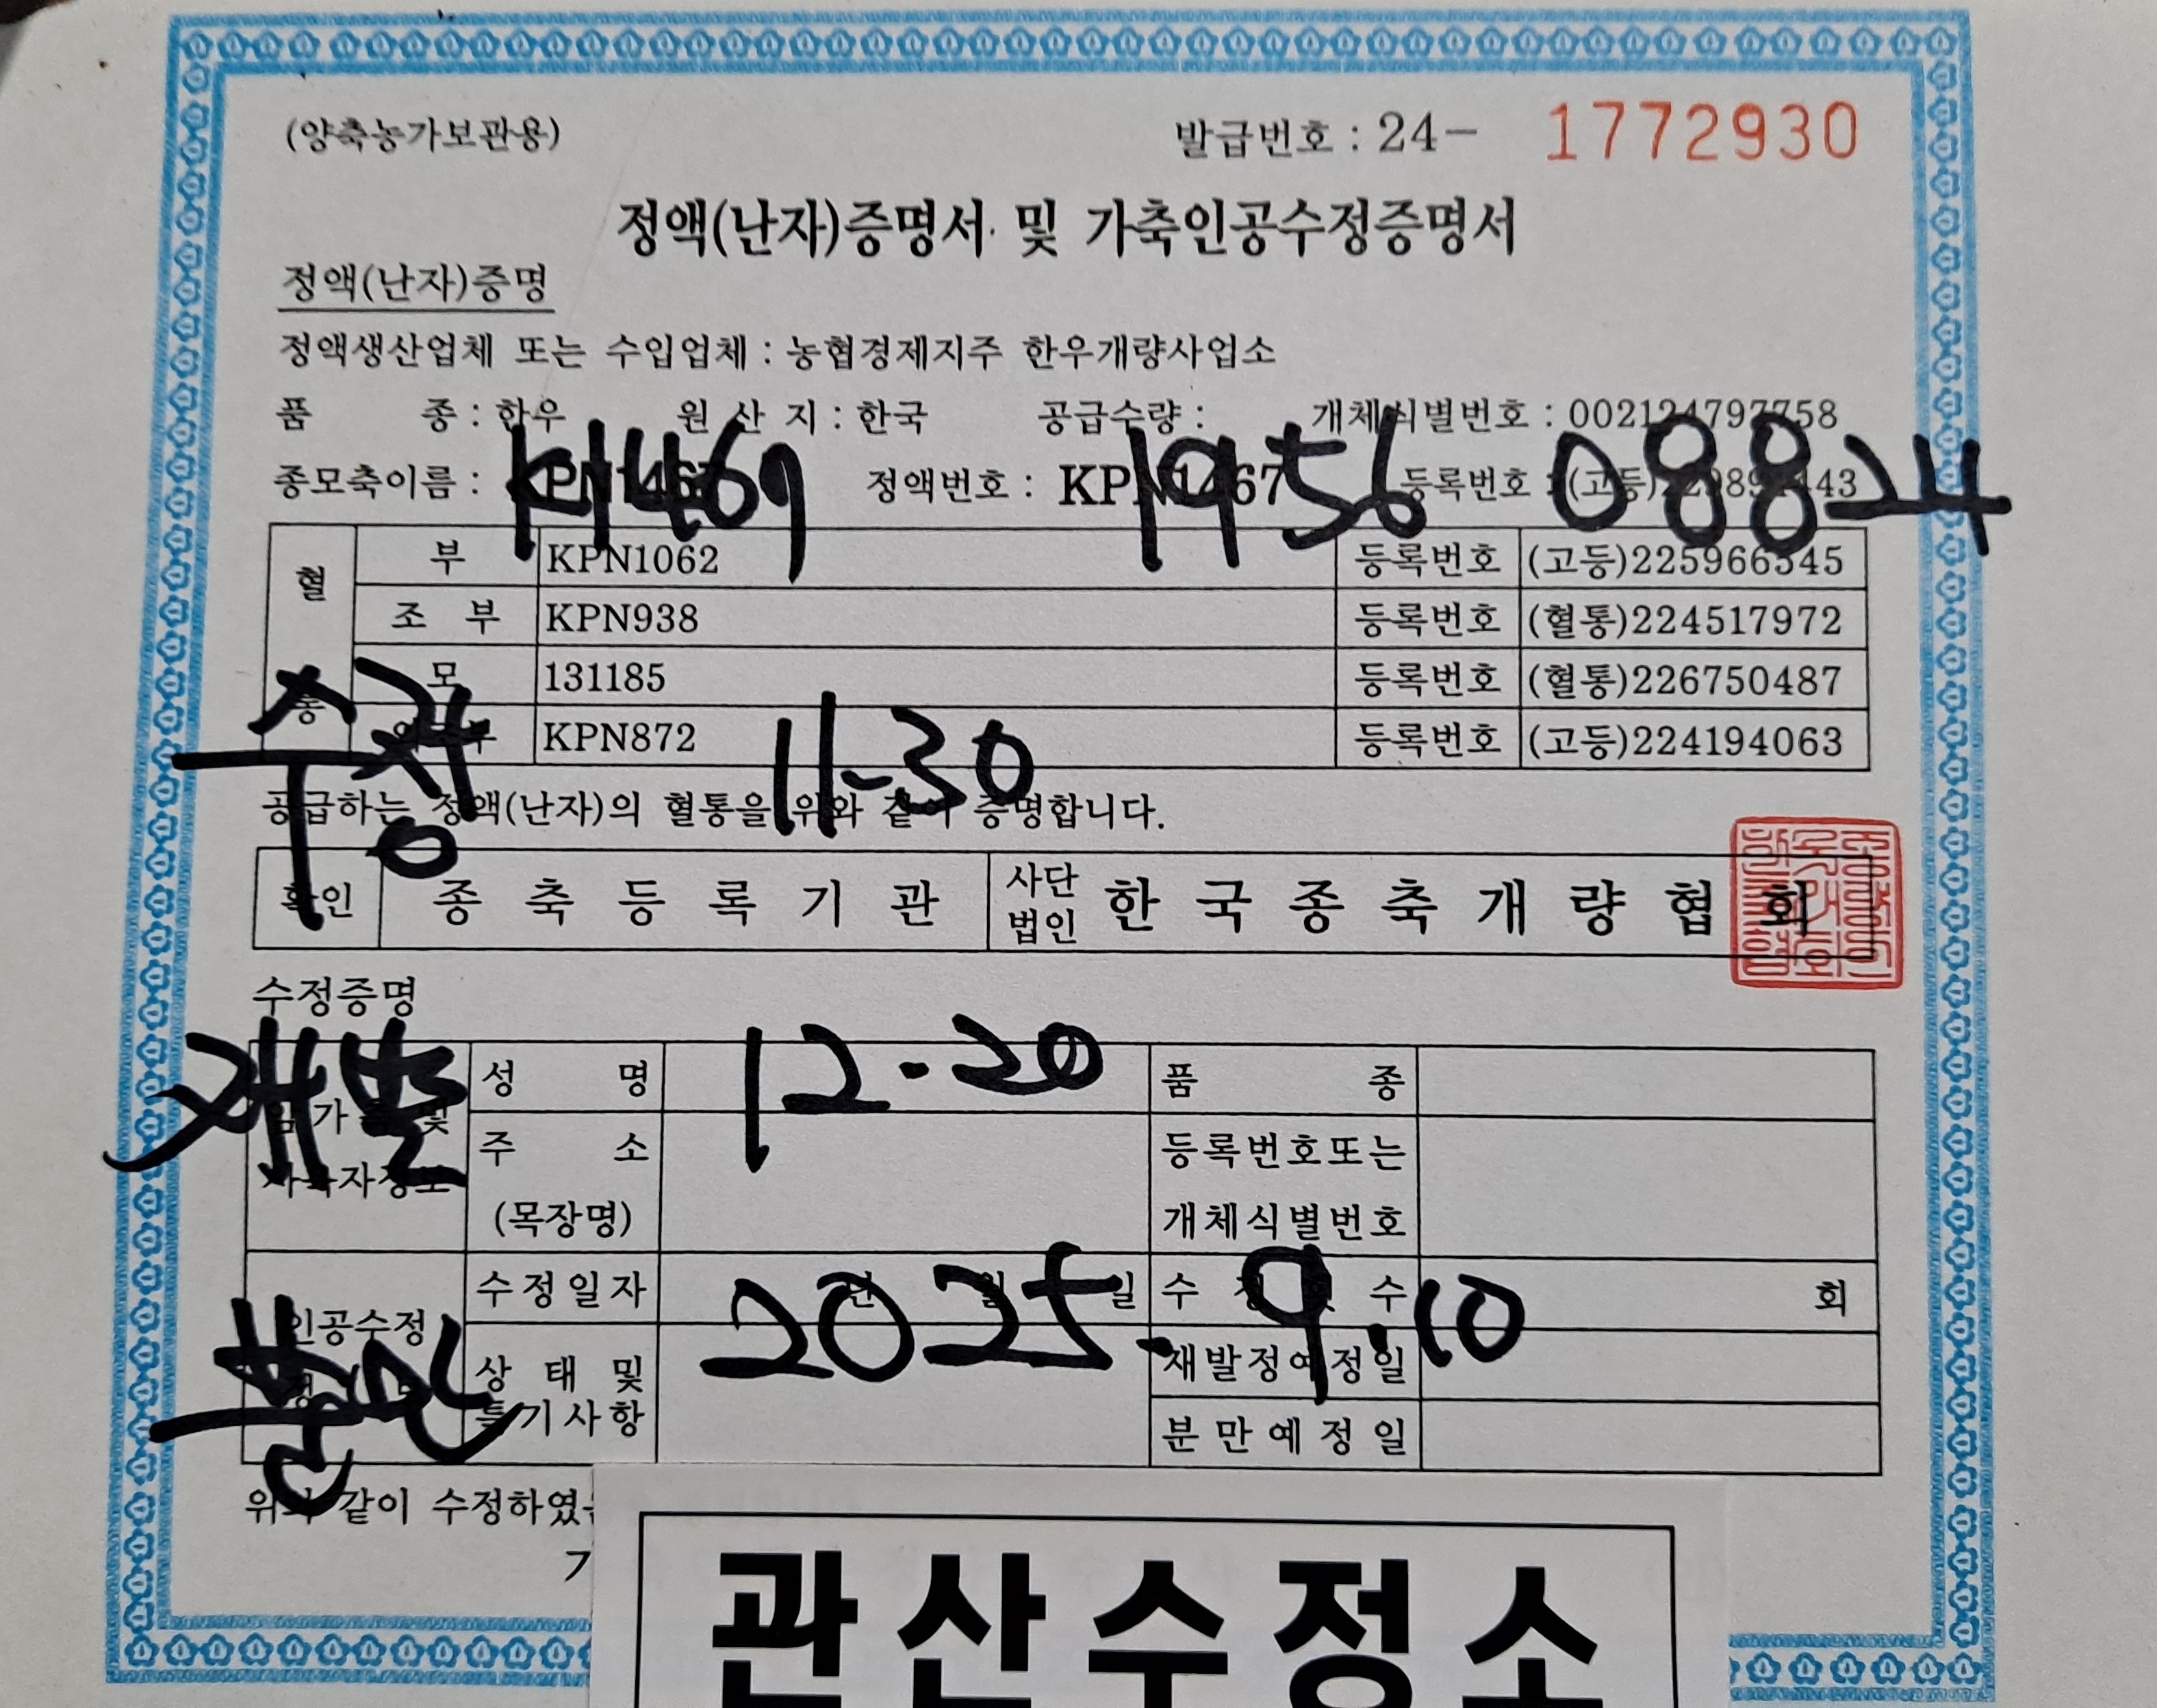 (양축농가보관용) 발급번호 : 24- 1772930
정액(난자)증명서 및 가축인공수정증명서
정액(난자)증명
정액생산업체 또는 수입업체 : 농협경제지주 한우개량사업소
품 종 : 한우 원 산 지 : 한국 공급수량 : 개체식별번호 : 002124797758
종모축이름 : 정액번호 : KPN1467 등록번호 : (고등)
1956 08824
혈통 부 KPN1062 등록번호 (고등)225966345
조 부 KPN938 등록번호 (혈통)224517972
모 131185 등록번호 (혈통)226750487
KPN872 등록번호 (고등)224194063
수정 11-30
공급하는 정액(난자)의 혈통을 위와 같이 증명합니다.
확인 종 축 등 록 기 관 사단법인 한 국 종 축 개 량 협 회
수정증명
재발 12-20
성 명 품 종
주 소 등록번호또는
(목장명) 개체식별번호
인공수정 수정일자 년 월 일 수 정 횟 수 회
분만 2025. 9.10
상 태 및 재발정예정일
특기사항 분만예정일
위와 같이 수정하였
관산수정소